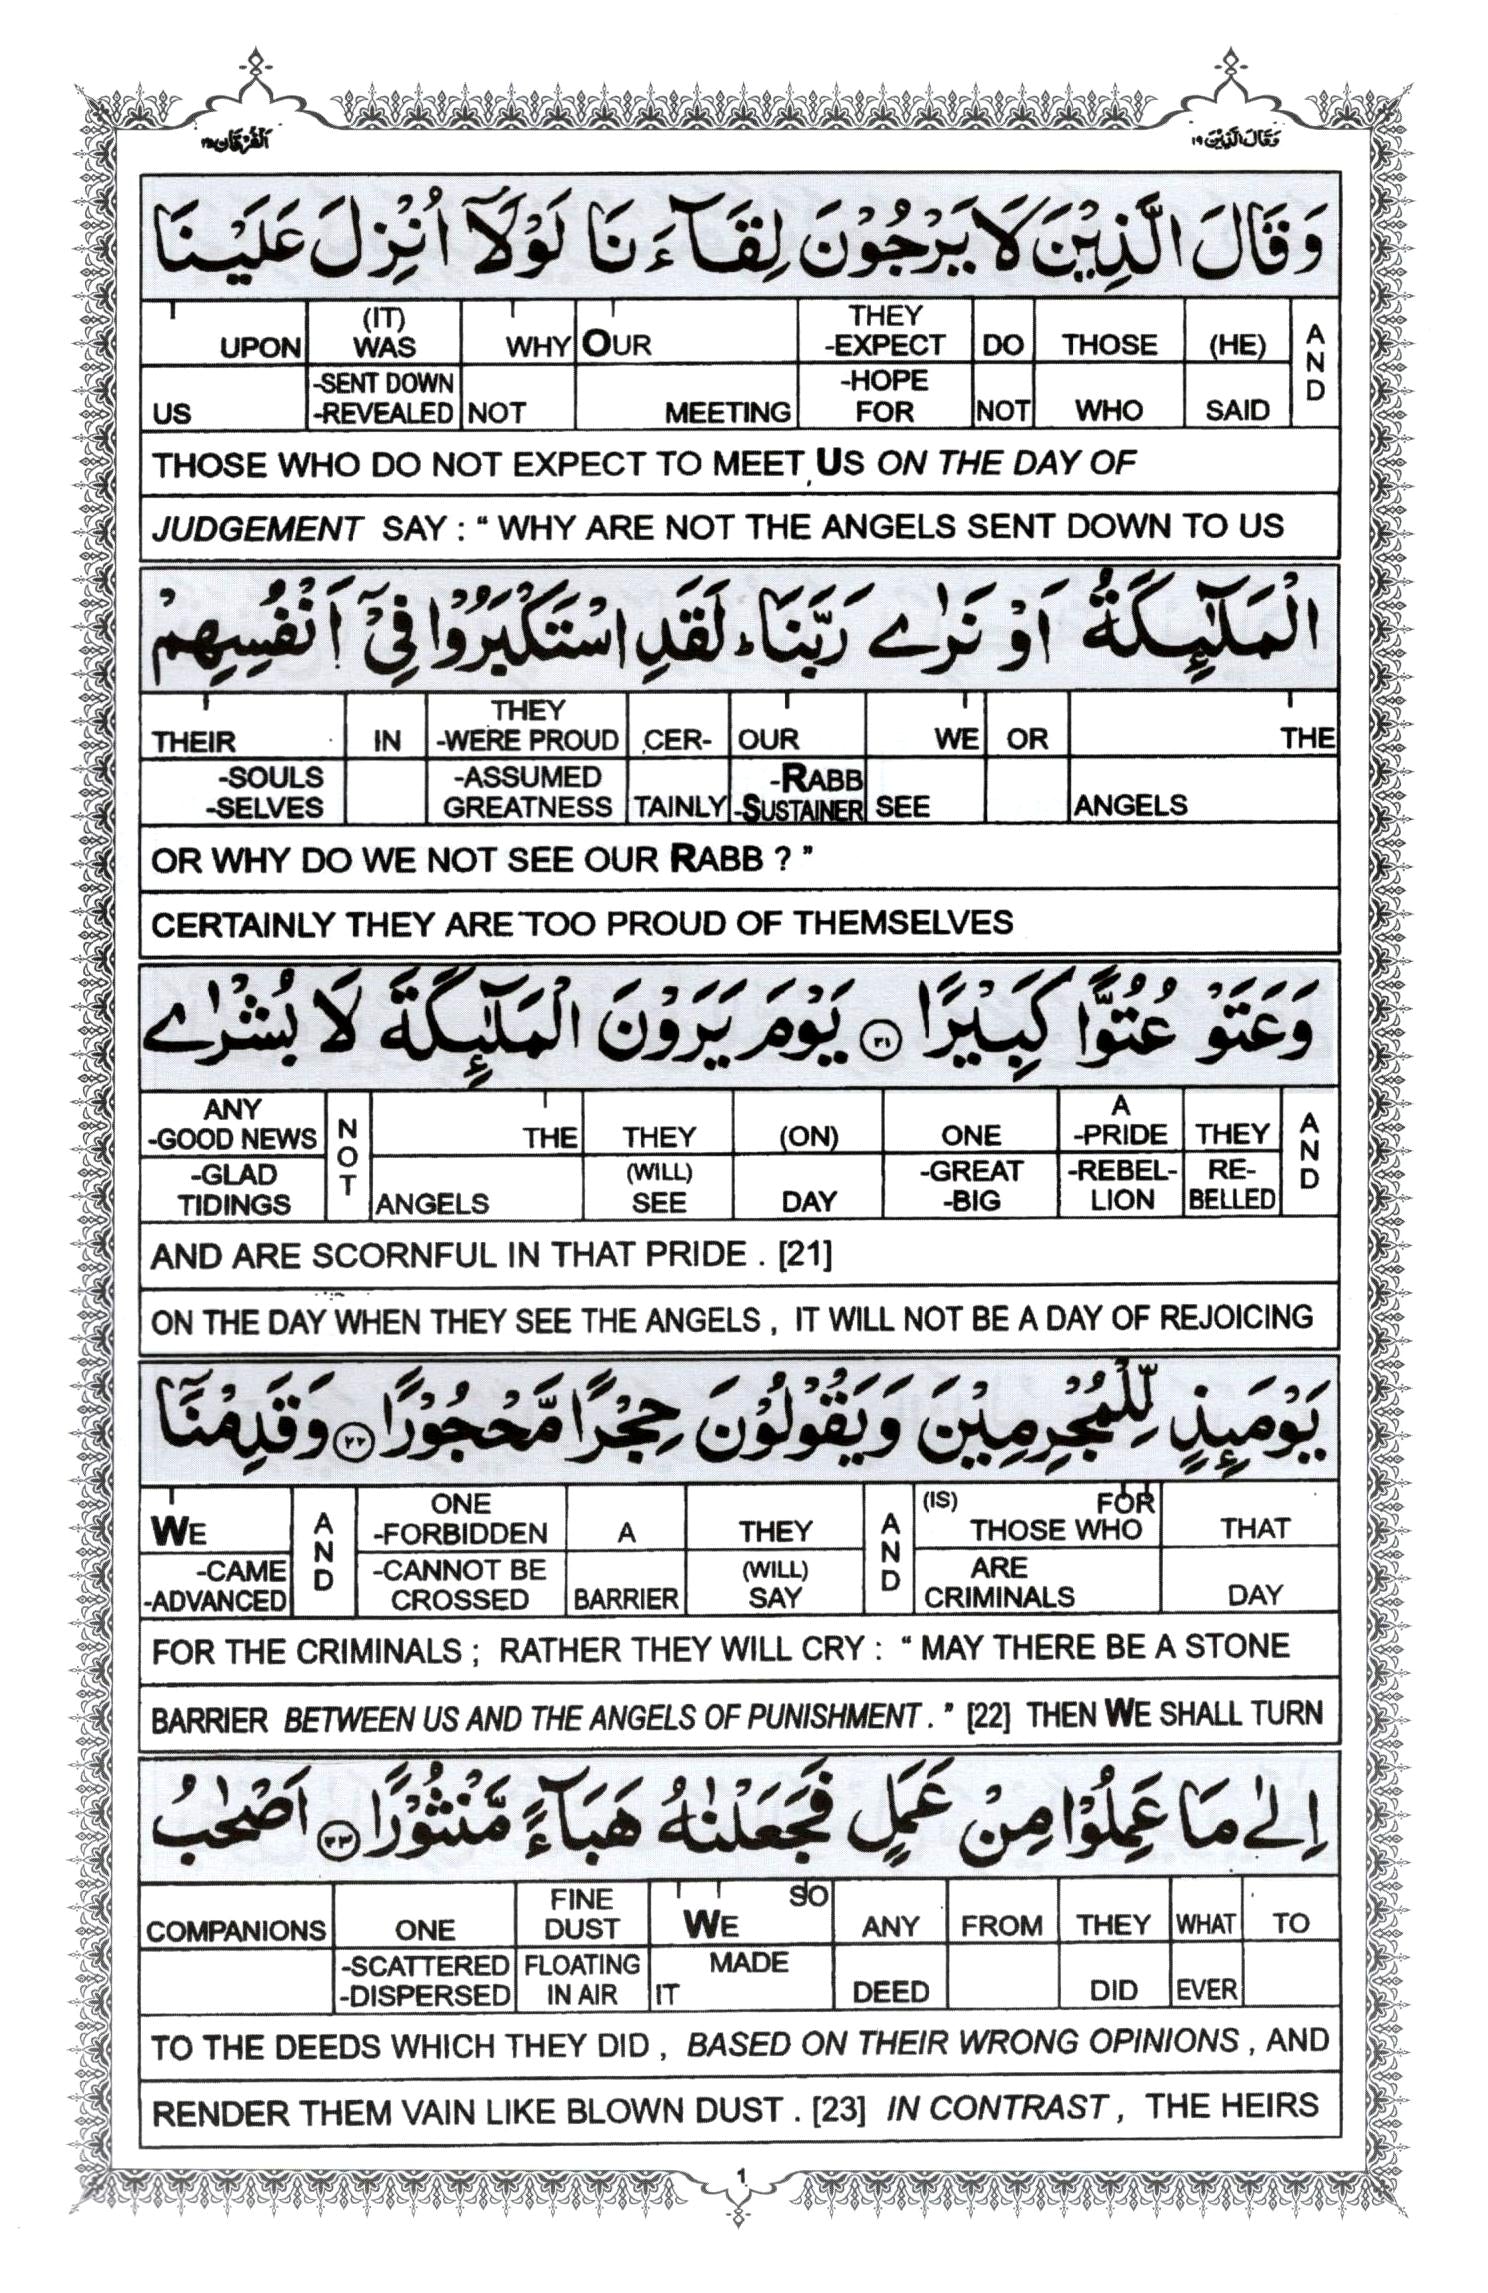 الفرقان ٢٥
وقال الذين ١٩
وَقَالَ الَّذِيْنَ لَا يَرْجُوْنَ لِقَآءَنَا لَوْلَآ اُنْزِلَ عَلَيْنَا
UPON (IT) WAS WHY OUR THEY -EXPECT DO THOSE (HE) AND
US -SENT DOWN -REVEALED NOT MEETING -HOPE FOR NOT WHO SAID
THOSE WHO DO NOT EXPECT TO MEET US ON THE DAY OF
JUDGEMENT SAY : “ WHY ARE NOT THE ANGELS SENT DOWN TO US
الْمَلٰٓئِكَةُ اَوْ نَرٰى رَبَّنَا ؕ لَقَدِ اسْتَكْبَرُوْا فِيْٓ اَنْفُسِهِمْ
THEIR IN THEY -WERE PROUD CER- OUR WE OR THE
-SOULS -SELVES -ASSUMED GREATNESS TAINLY -RABB -SUSTAINER SEE ANGELS
OR WHY DO WE NOT SEE OUR RABB ? ”
CERTAINLY THEY ARE TOO PROUD OF THEMSELVES
وَعَتَوْ عُتُوًّا كَبِيْرًا ٢١ يَوْمَ يَرَوْنَ الْمَلٰٓئِكَةَ لَا بُشْرٰى
ANY -GOOD NEWS NOT THE THEY (ON) ONE A -PRIDE THEY AND
-GLAD TIDINGS ANGELS (WILL) SEE DAY -GREAT -BIG -REBEL- LION RE- BELLED
AND ARE SCORNFUL IN THAT PRIDE . [21]
ON THE DAY WHEN THEY SEE THE ANGELS , IT WILL NOT BE A DAY OF REJOICING
يَوْمَئِذٍ لِّلْمُجْرِمِيْنَ وَيَقُوْلُوْنَ حِجْرًا مَّحْجُوْرًا ٢٢ وَقَدِمْنَآ
WE AND ONE -FORBIDDEN A THEY AND (IS) FOR THOSE WHO THAT
-CAME -ADVANCED -CANNOT BE CROSSED BARRIER (WILL) SAY ARE CRIMINALS DAY
FOR THE CRIMINALS ; RATHER THEY WILL CRY : “ MAY THERE BE A STONE
BARRIER BETWEEN US AND THE ANGELS OF PUNISHMENT . ” [22] THEN WE SHALL TURN
اِلٰى مَا عَمِلُوْا مِنْ عَمَلٍ فَجَعَلْنٰهُ هَبَآءً مَّنْثُوْرًا ٢٣ اَصْحٰبُ
COMPANIONS ONE FINE DUST WE SO ANY FROM THEY WHAT TO
-SCATTERED -DISPERSED FLOATING IN AIR IT MADE DEED DID EVER
TO THE DEEDS WHICH THEY DID , BASED ON THEIR WRONG OPINIONS , AND
RENDER THEM VAIN LIKE BLOWN DUST . [23] IN CONTRAST , THE HEIRS
1